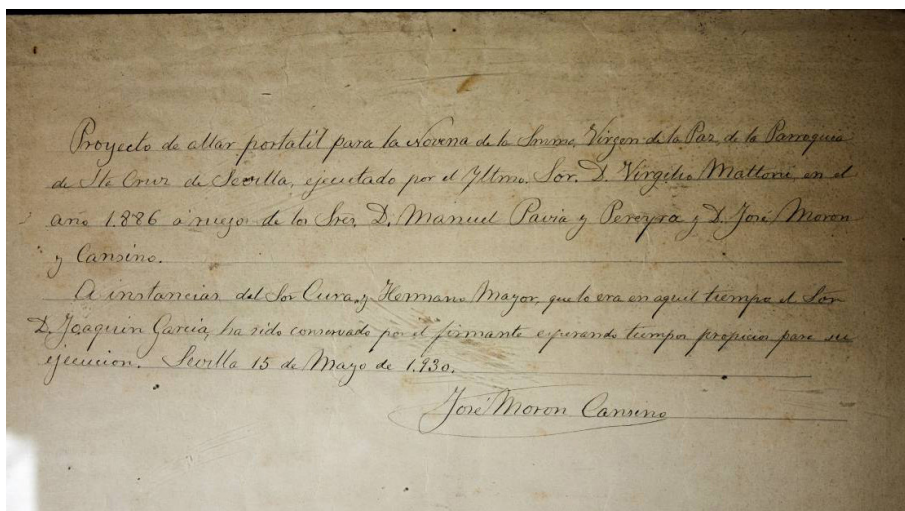 Proyecto de altar portatil para la Novena de la Smma. Virgen de la Paz, de la Parroquia
de Sta Cruz de Sevilla, ejecutado por el Yltmo. Sor. D. Virgilio Mattoni, en el
año 1.886 á ruegos de los Sres. D. Manuel Pavia y Pereyra y D. José Moron
y Cansino.
A instancias del Sor Cura, y Hermano Mayor, que lo era en aquel tiempo el Sor
D. Joaquin Garcia, ha sido conservado por el firmante esperando tiempos propicios para su
ejecucion. Sevilla 15 de Mayo de 1.930.
José Moron Cansino